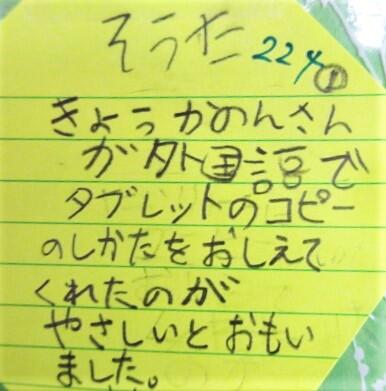 そうた 224 ①
きょうかのんさん
が外国語で
タブレットのコピー
のしかたをおしえて
くれたのが
やさしいとおもい
ました。